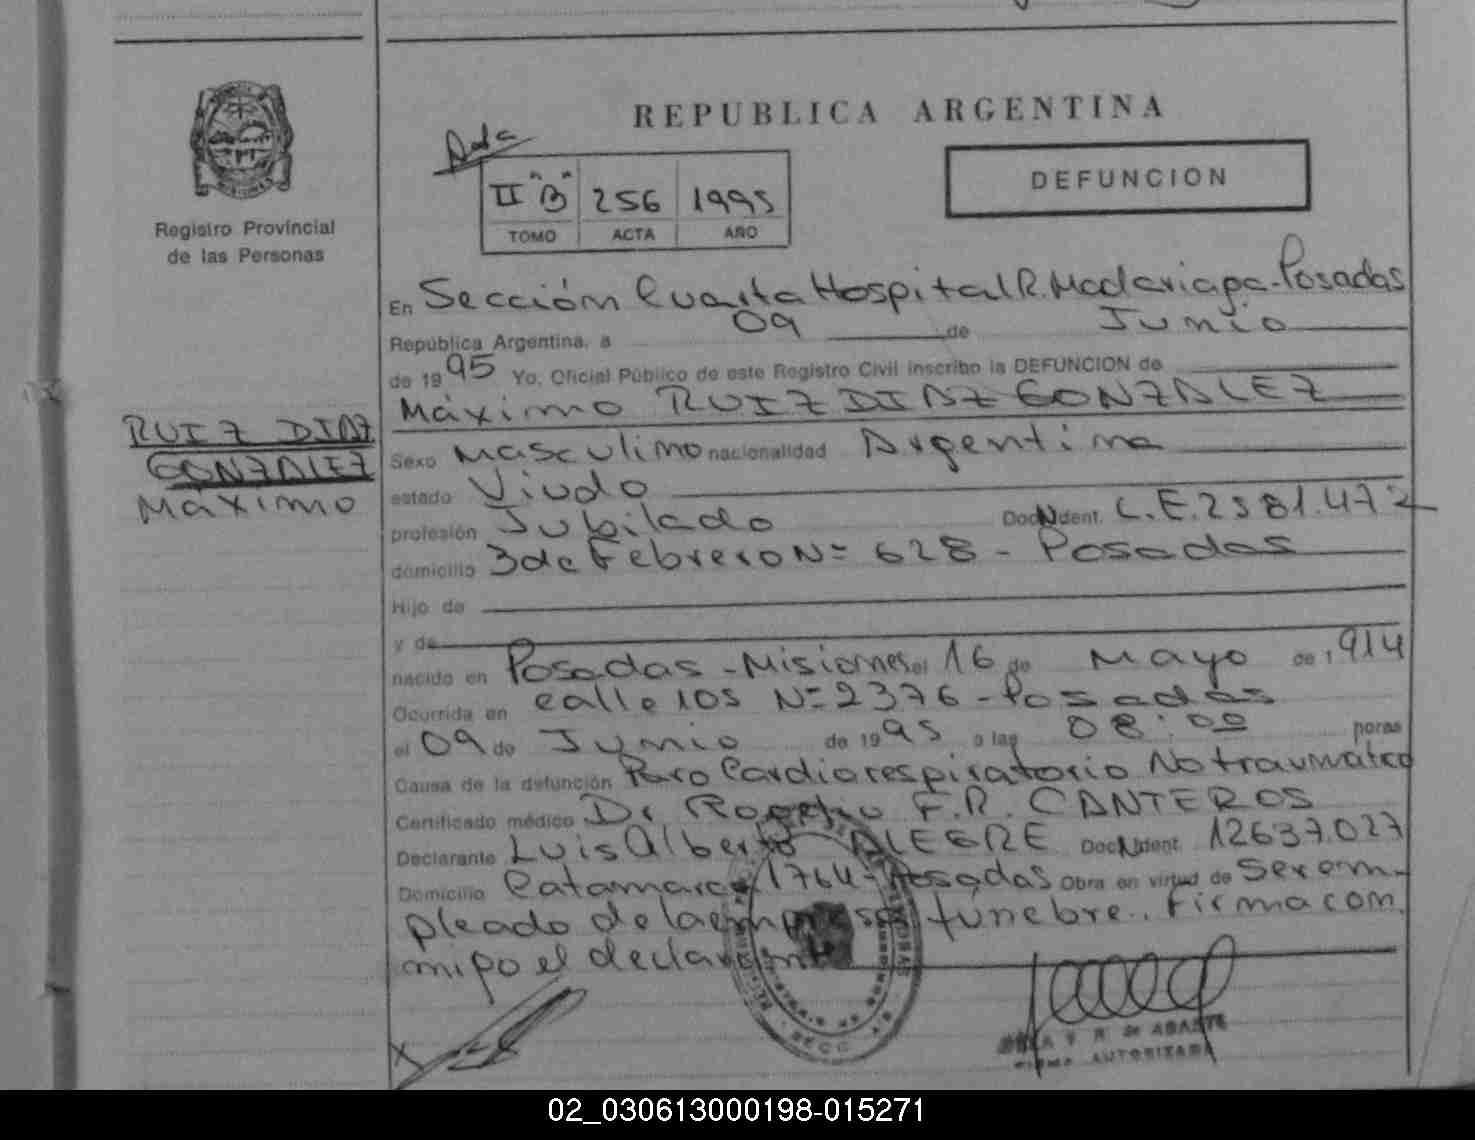 REPUBLICA ARGENTINA
DEFUNCION
II "B" 256 1995
TOMO ACTA AÑO
Registro Provincial
de las Personas
En Sección Cuarta Hospital R. Madariaga - Posadas
República Argentina, a 09 de Junio
de 1995 Yo, Oficial Público de este Registro Civil inscribo la DEFUNCION de
Máximo RUIZ DIAZ GONZALEZ
RUIZ DIAZ
GONZALEZ
Máximo
Sexo Masculino nacionalidad Argentina
estado Viudo
profesión Jubilado Doc. Ident. L.E. 2581.472
domicilio 3 de Febrero Nº 628 - Posadas
Hijo de
y de
nacido en Posadas - Misiones el 16 de Mayo de 1914
Ocurrida en calle 105 Nº 2376 - Posadas
el 09 de Junio de 1995 a las 08:00 horas
Causa de la defunción Paro Cardiorespiratorio No traumático
Certificado médico Dr Rogelio F.R. CANTEROS
Declarante Luis Alberto ALEGRE Doc. Ident. 12637.027
Domicilio Catamarca 1764 - Posadas Obra en virtud de Ser em-
pleado de la empresa fúnebre. Firma con
migo el declarante
X
FIRMA AUTORIZADA
02_030613000198-015271